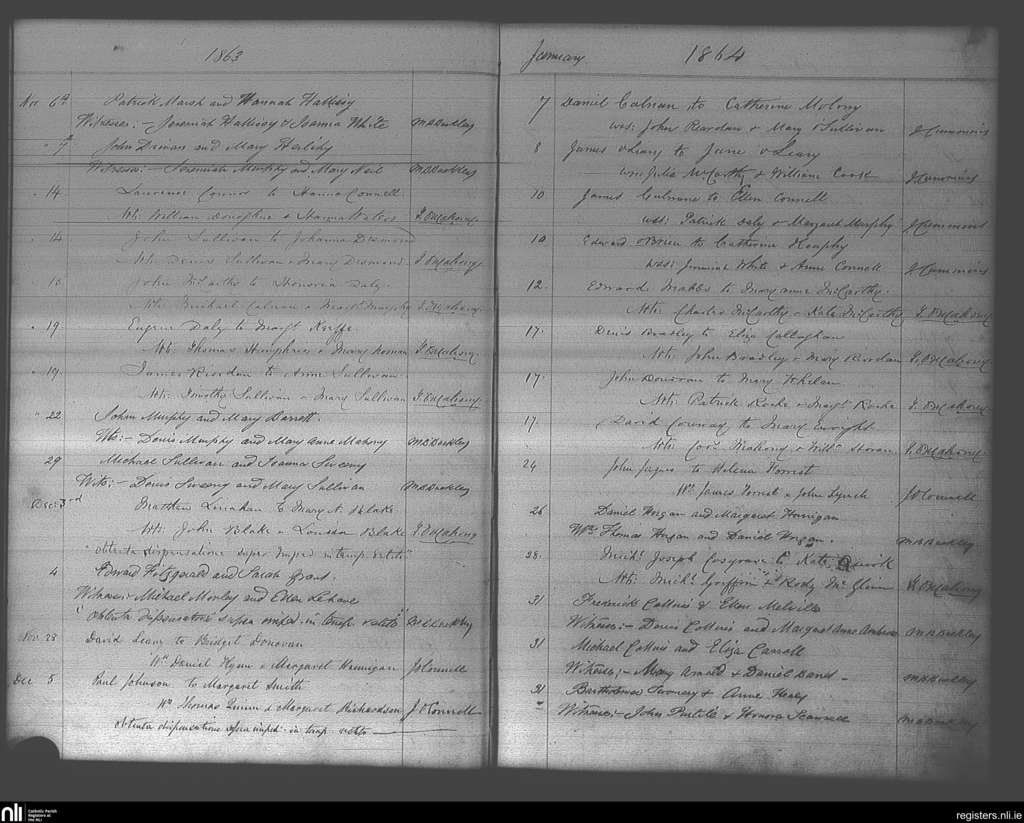 1863
Nov 6th Patrick Marsh and Hannah Hallisy
Witnesses:- Jeremiah Hallisy & Joanna White MB Buckley
" 9th John Drinan and Mary Herlihy
Witnesses:- Jeremiah Murphy and Mary Neil MB Buckley
" 14 Laurence Connor to Hanna Connell
Wts William Donoghue & Hanna Waters J. O'Mahony
" 14 John Sullivan to Johanna Desmond
Wts: Denis Sullivan & Mary Desmond J. O'Mahony
" John McCarthy to Honoria Daly.
Wts Michael Calnan & Margt Murphy J. O'Mahony
" 19. Eugene Daly to Margt Keeffe.
Wts: Thomas Humphries & Mary Noonan J. O'Mahony
" 19. James Riordan to Anne Sullivan
Wts: Timothy Sullivan & Mary Sullivan J. O'Mahony
" 22 John Murphy and Mary Barrett.
Wts:- Denis Murphy and Mary Anne Mahony MB Buckley
29 Michael Sullivan and Joanna Sweeny
Wits:- Denis Sweeny and Mary Sullivan MB Buckley
Dec: 3rd Matthew Linehan to Mary A. Blake
Wts: John Blake & Louisa Blake J. O'Mahony
"obtenta dispensatione super Imped in temp: vetito"
4 Edward Fitzgerald and Sarah Grant.
Witnesses:- Michael Morley and Ellen Lehane
"obtenta dispensatione super imped. in temp: vetito" MB Buckley
Nov. 28 David Leary to Bridget Donovan
Ws Daniel Flynn & Margaret Hannigan JO'Connell
Dec 5 Paul Johnson to Margaret Smith
Ws Thomas Quinn & Margaret Richardson J. O'Connell
obtenta dispensatione super imped. in temp. vetito
January 1864
7 Daniel Calnan to Catherine Molony
wss: John Reardan & Mary O'Sullivan J Cummins
8 James O'Leary to Jane O'Leary
wss: Julia McCarthy & William Cook J Cummins
10 James Culnane to Ellen Connell
wss: Patrick Daly & Margaret Murphy J Cummins
10 Edward O'Brien to Catherine Murphy
wss: Jeremiah White & Anne Connell J Cummins
12. Edward Mabbs to Mary Anne McCarthy.
Wts: Charles McCarthy & Kate McCarthy J. O'Mahony
17. Denis Bradley to Eliza Callaghan
Wts: John Bradley & Mary Riordan J. O'Mahony
17. John Donovan to Mary Whelan
Wts: Patrick Roche & Margt Roche J. O'Mahony
17. David Conway to Mary Enright.
Wts: Corns Mahony & Willm J. O'Mahony
24 John Jaques to Helena Forrest
Ws James Forrest & John Lynch JO'Connell
26 Daniel Horgan and Margaret Horrigan
Ws Thomas Horgan and Daniel Horgan. MB Buckley
28. Michl Joseph Cosgrave to Kate Quirk
Wts: Michl Griffin & Kody McGlinn J. O'Mahony
31 Frederick Collins & Ellen Melville
Witnesses:- Denis Collins and Margaret Anne MB Buckley
31 Michael Collins and Eliza Carroll
Witnesses:- Mary Arnold & Daniel Dand - MB Buckley
31 Bartholomew Sweeney & Anne Healy
Witnesses:- John & Honora Scannell MB Buckley
nli Catholic Parish Registers at the NLI
registers.nli.ie